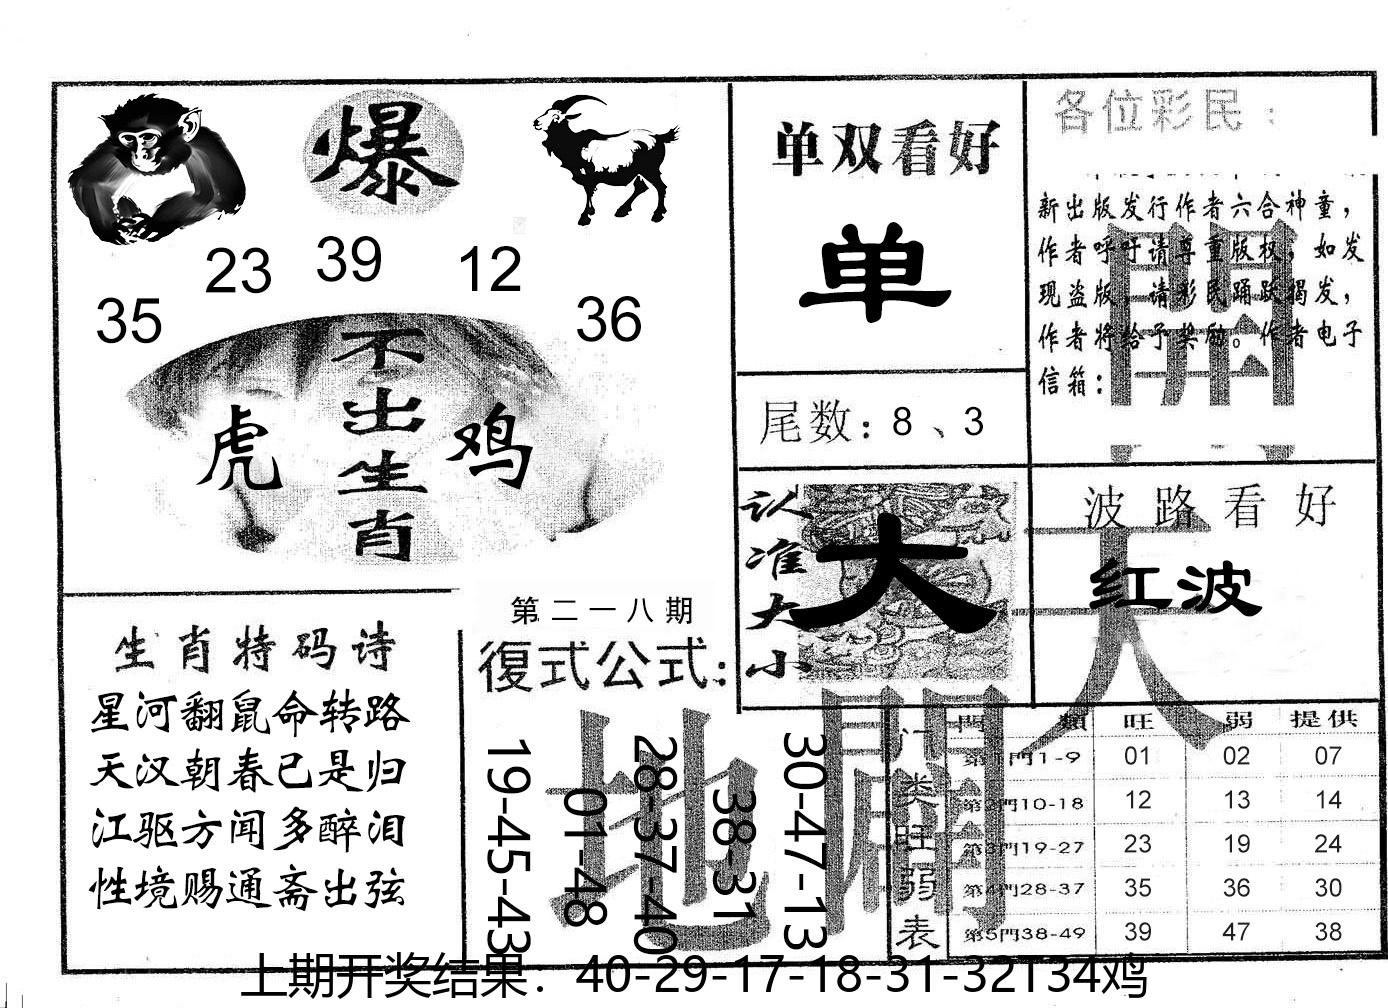 爆
23 39 12
35 36
不出生肖
虎 鸡
单双看好
单
尾数：8、3
认准大小
大
各位彩民：
新出版发行作者六合神童，
作者呼吁请尊重版权，如发
现盗版，请彩民踊跃揭发，
作者将给予奖励。作者电子
信箱：
波路看好
红波
生肖特码诗
星河翻鼠命转路
天汉朝春已是归
江驱方闻多醉泪
性境赐通斋出弦
第二一八期
復式公式：
19-45-43
01-48
28-37-40
38-31
30-47-13
天
地
開
门类旺弱表
門類 旺 弱 提供
第1門1-9 01 02 07
第2門10-18 12 13 14
第3門19-27 23 19 24
第4門28-37 35 36 30
第5門38-49 39 47 38
上期开奖结果：40-29-17-18-31-32T34鸡